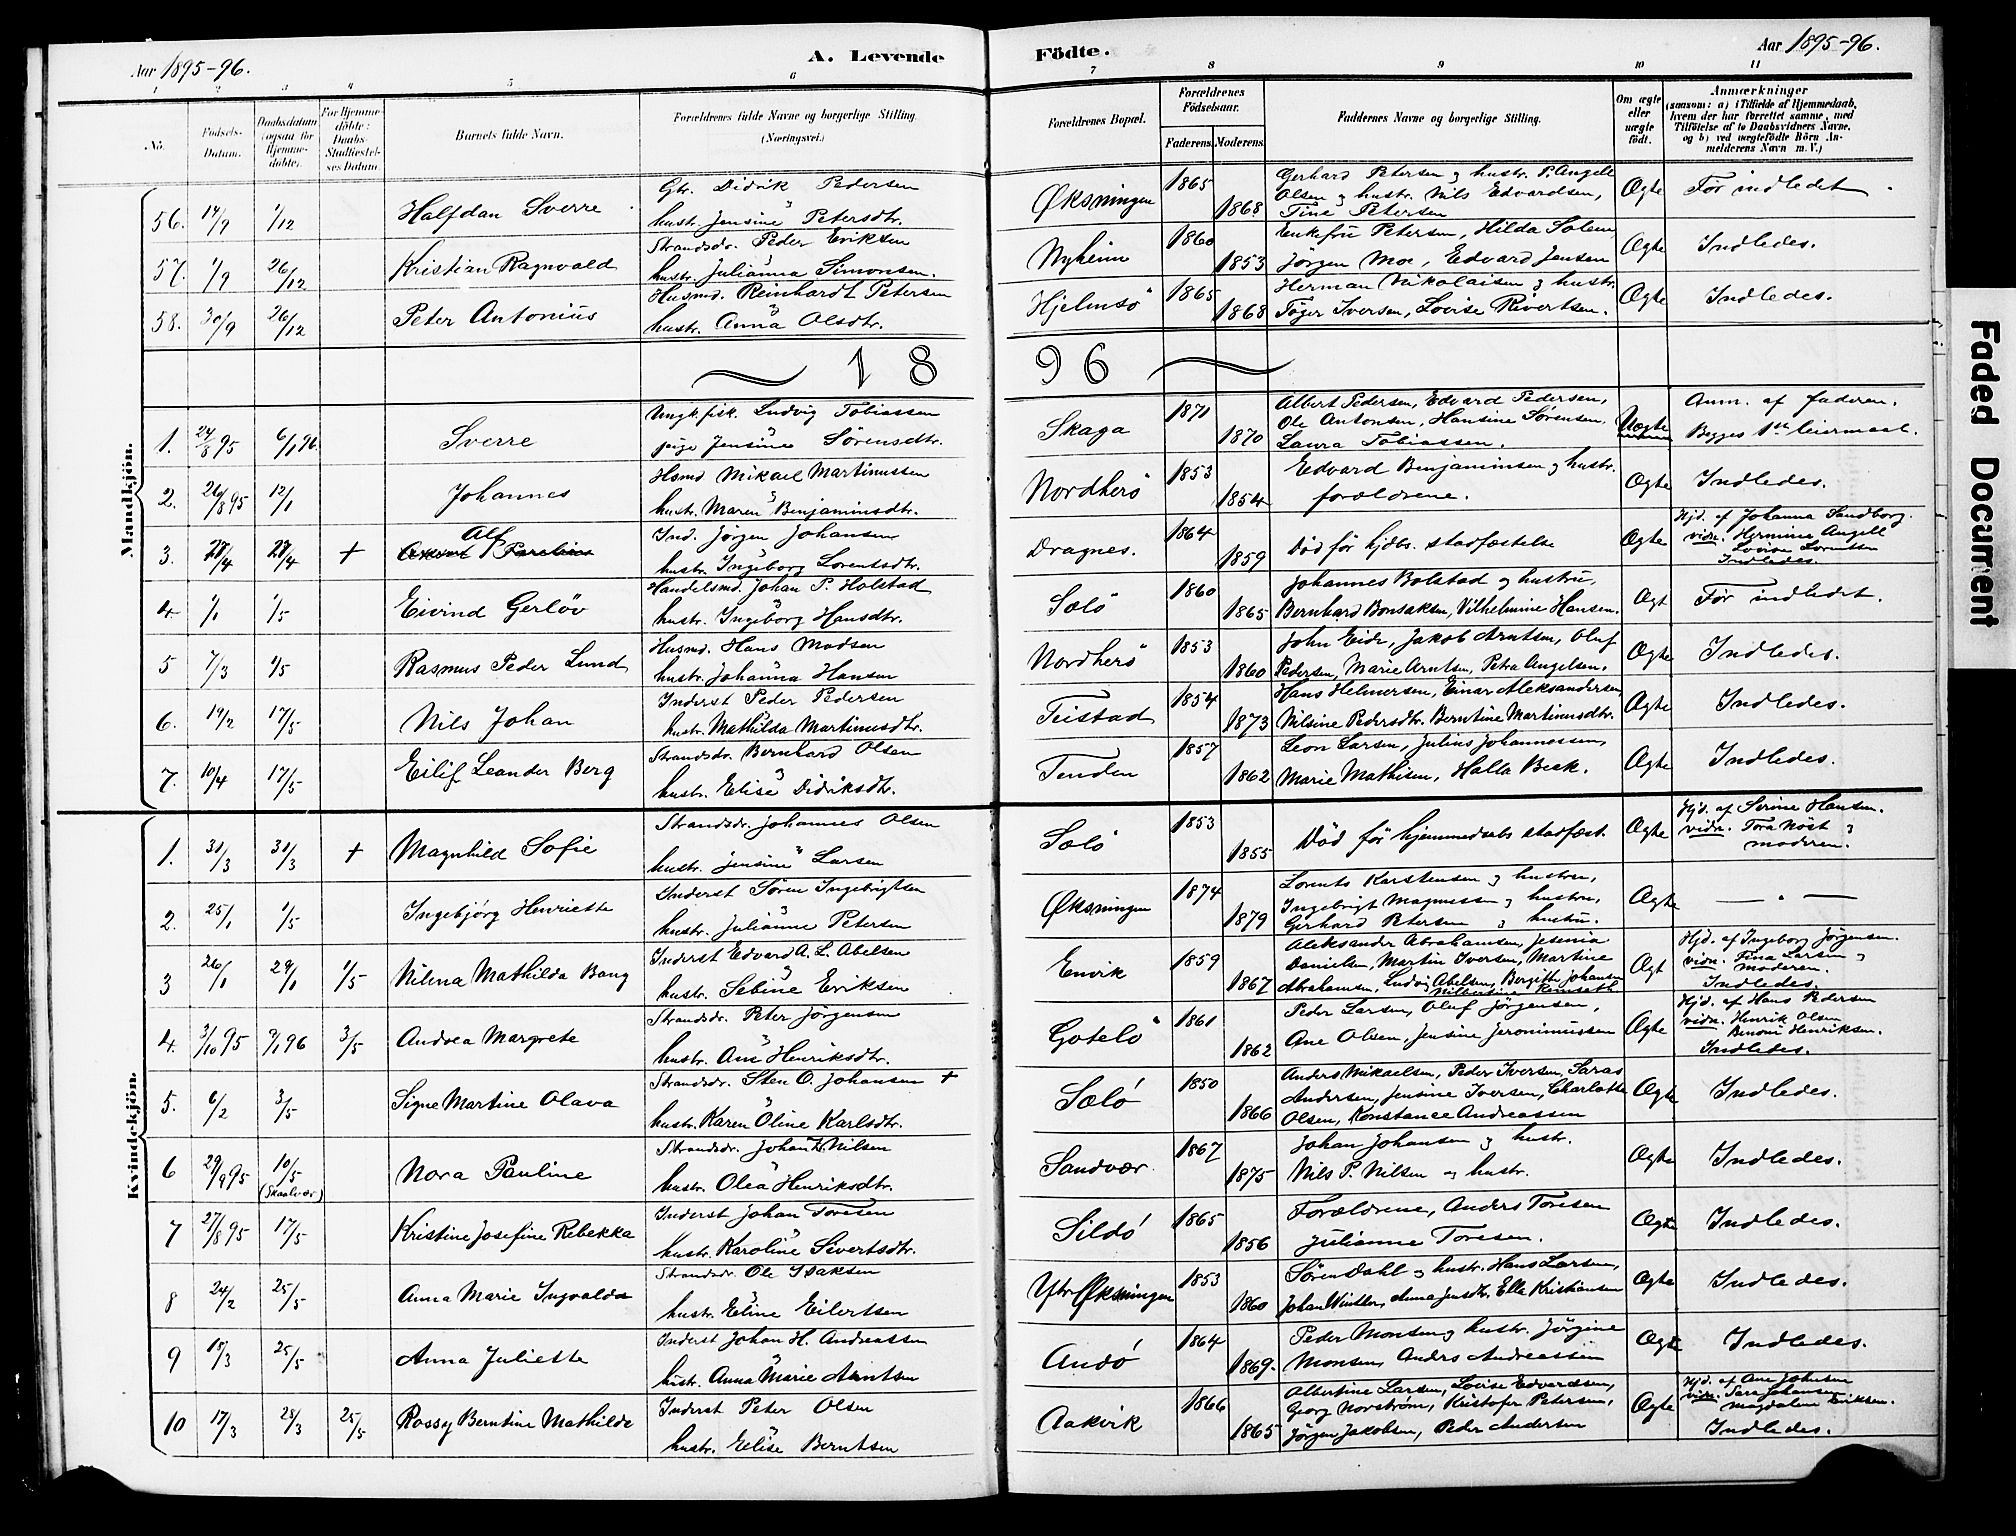 Aar 1895-96.
A. Levende
Födte.
Aar 1895-96.
1 2 3 4 5 6 7 8 9 10 11
No.
Födsels-
Datum.
Daabsdatum
(ogsaa for
Hjemme-
döbte).
For Hjemme-
döbte:
Daabs
Stadfæstel-
ses Datum
Barnets fulde Navn.
Forældrenes fulde Navne og borgerlige Stilling
(Næringsvei.)
Forældrenes Bopæl.
Forældrenes
Födselsaar.
Faderens Moderens
Faddernes Navne og borgerlige Stilling.
Om ægte
eller
uægte
födt.
Anmærkninger
(saasom: a) i Tilfælde af Hjemmedaab,
hvem der har forrettet samme, med
Tilföielse af to Daabsvidners Navne,
og b) ved uægtefödte Börn An-
melderens Navn m. V.)
Mandkjön.
56. 14/9 1/12 Halfdan Sverre
Gbr. Didrik Pedersen
hustr. Jensine Petersdtr.
Øksningen 1865 1868
Gerhard Petersen og hustr. P. Angell
Olsen og hustr. Nils Edvardsen,
Tine Petersen
Ægte Før indledet
57. 1/9 26/12 Kristian Ragnvald
Strandsdr. Peder Eriksen
hustr. Julianna Simonsen.
Nyheim 1860 1853
Enkefru Petersen, Hilda Solem
Jørgen Moe, Edvard Jensen
Ægte Indledes.
58. 30/9 26/12 Peter Antonius
Husmd. Reinhardt Petersen
hustr. Anna Olsdtr.
Hjelmsö 1865 1868
Herman Nikolaisen og hustr.
Töger Iversen, Lovise Sivertsen.
Ægte Indledes.
18 96
1. 24/8 95 6/1 96. Sverre
Ungk. fisk. Ludvig Tobiassen
pige Jensine Sörensdtr.
Skaga 1871 1870
Albert Pedersen, Edvard Pedersen,
Ole Antonsen, Hansine Sørensen,
Laura Tobiassen.
Uægte
Anm. af faderen.
Begges 1ste leiermaal.
2. 26/8 95 12/1 Johannes
Hsmd Mikael Martinussen
hustr. Maren Benjaminsdtr.
Nordherö 1853 1854
Edvard Benjaminsen og hustr.
forældrene.
Ægte Indledes.
3. 27/4 27/4 + Alf
Ind. Jörgen Johansen
hustr. Ingeborg Lorentsdtr.
Dragnes. 1864 1859
Död för hjdbs. stadfæstelse
Ægte
Hjd. af Johanna Sandborg.
vidn. Hermine Angell
Lovise Lorentsen
Indledes.
4. 1/1 1/5 Eivind Gerlöv
Handelsmd. Johan P. Holstad
hustr. Ingeborg Hansdtr.
Sölö 1860 1865
Johannes Bolstad og hustru,
Bernhard Bonsaksen, Vilhelmine Hansen.
Ægt Før indledet.
5 7/3 1/5 Rasmus Peder Lund
Husmd. Hans Madsen
hustr. Johanna Hansen
Nordherö 1853 1860
John Eide, Jakob Arntsen, Oluf
Pedersen, Marie Arntsen, Petra Angelsen.
Ægte Indledes.
6. 19/2 17/5 Nils Johan
Inderst Peder Pedersen
hustr. Mathilda Martinusdtr.
Teistad 1854 1873
Hans Helmersen, Einar Aleksandersen
Nilsine Pedersdtr. Berntine Martinusdtr.
Ægte Indledes.
7. 10/4 17/5 Eilif Leander Berg
Strandsdr. Bernhard Olsen
hustr. Elise Didriksdtr.
Tenden 1857 1862
Leon Larsen, Julius Johannessen,
Marie Mathisen, Halla Beck.
Ægte Indledes.
Kvindekjön.
1. 31/3 31/3 + Magnhild Sofie
Strandsdr. Johannes Olsen
hustr. Jensine Larsen
Sölö 1853 1855
Död før hjemmedaabs stadfæst.
Ægte
Hjd. af Serine Hansen.
vidn. Tora Nöst og
moderen.
2. 25/1 1/5 Ingebjörg Henriette
Inderst Sören Ingebrigtsen
hustr. Julianne Petersen
Øksningen 1874 1879
Lorents Karstensen og hustru,
Ingebrigt Magnussen og hustru,
Gerhard Petersen og hustru.
Ægte — " —
3 26/1 29/1 1/5 Nilma Mathilda Bang
Inderst Edvard A. L. Abelsen
hustr. Sebine Eriksen
Envik 1859 1867
Aleksander Abrahamsen, Jesenia
Danielsen, Martin Iversen, Martine
Abrahamsen, Ludvig Abelsen, Bergitte Johansen
Ægt
Hjd. af Ingeborg Jörgensen.
vidn. Fina Larsen og
moderen.
Indledes.
4. 3/10 95 9/1 96 3/5 Andrea Margrete
Strandsdr. Peter Jörgensen
hustr. Ane Henriksdtr.
Gotelö 1861 1862
Peder Larsen, Oluf Jörgensen,
Ane Olsen, Jensine Jeronimussen
Ægte
Hjd. af Hans Pedersen
vidn. Henrik Olsen
Benoni Henriksen.
Indledes.
5. 6/2 3/5 Signe Martine Olava
Strandsdr. Sten O. Johansen +
hustr. Karen Oline Karlsdtr.
Sölö 1850 1866
Anders Mikaelsen, Peder Iversen, Saras
Andersen, Jensine Iversen, Charlotte
Olsen, Konstance Andreassen
Ægte Indledes.
6 29/9 95 10/5 (Skaalvær) Nora Pauline
Strandsdr. Johan Nilsen
hustr. Olea Henriksdtr.
Sandvær. 1867 1875
Johan Johansen og hustr.
Nils P. Nilsen og hustr.
Ægte Indledes.
7 27/8 95 17/5 Kristine Josefine Rebekka
Inderst Johan Toresen
hustr. Karoline Sivertsdtr.
Sildö 1865 1856
Forældrene, Anders Toresen
Julianne Toresen.
Ægte Indledes.
8 24/2 25/5 Anna Marie Ingvalda
Strandsdr. Ole Isaksen
hustr. Eline Eilertsen
Ytr. Øksningen 1853 1860
Sören Dahl og hustr. Hans Larsen,
Johan Winther, Anna Jensdtr. Ella Kristiansen
Ægte Indledes.
9 18/3 25/5 Anna Juliette
Inderst Johan H. Andreassen
hustr. Anna Marie Arntsen
Andö 1864 1869.
Peder Monsen og hustr. Jörgine
Monsen, Anders Andreassen
Ægte Indledes.
10 17/3 28/3 25/5 Rossy Berntine Mathilde
Inderst Peter Olsen
hustr. Elise Berntsen
Aakvik 1866 1865
Albertine Larsen, Lovise Edvardsen,
Georg Norström, Kristofer Petersen,
Jörgen Jakobsen, Peder Andersen
Ægte
Hjd. af Ane Johnsen
vidn. Sara Johansen
Magdalena Eriksen.
Indledes.
Faded Document